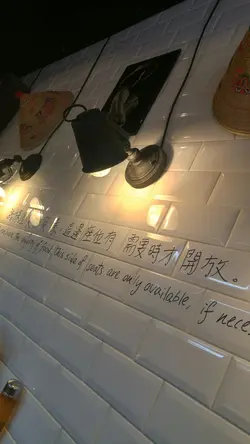 這邊座位有 需要時才開放。
the quality of food, this side of seats are only available, if nece